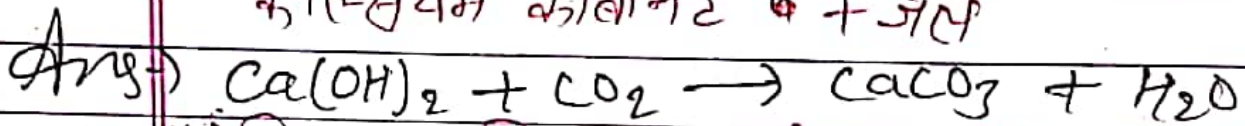 कैल्सियम कार्बोनेट + जल
Ans→ Ca(OH)₂ + CO₂ → CaCO₃ + H₂O